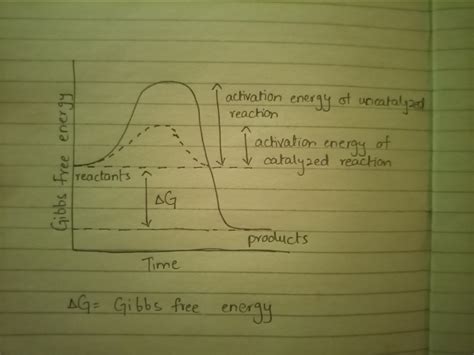 activation energy of uncatalyzed
reaction
activation energy of
catalyzed reaction
Gibbs free energy
reactants
ΔG
products
Time
ΔG= Gibbs free energy